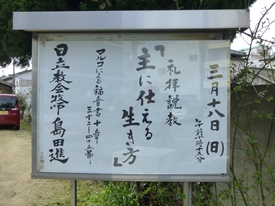 三月十八日(日)
午前十時十五分
礼拝説教
『主に仕える
生き方』
マルコによる福音書十章
三十二〜四十五節
日立教会牧師 島田進